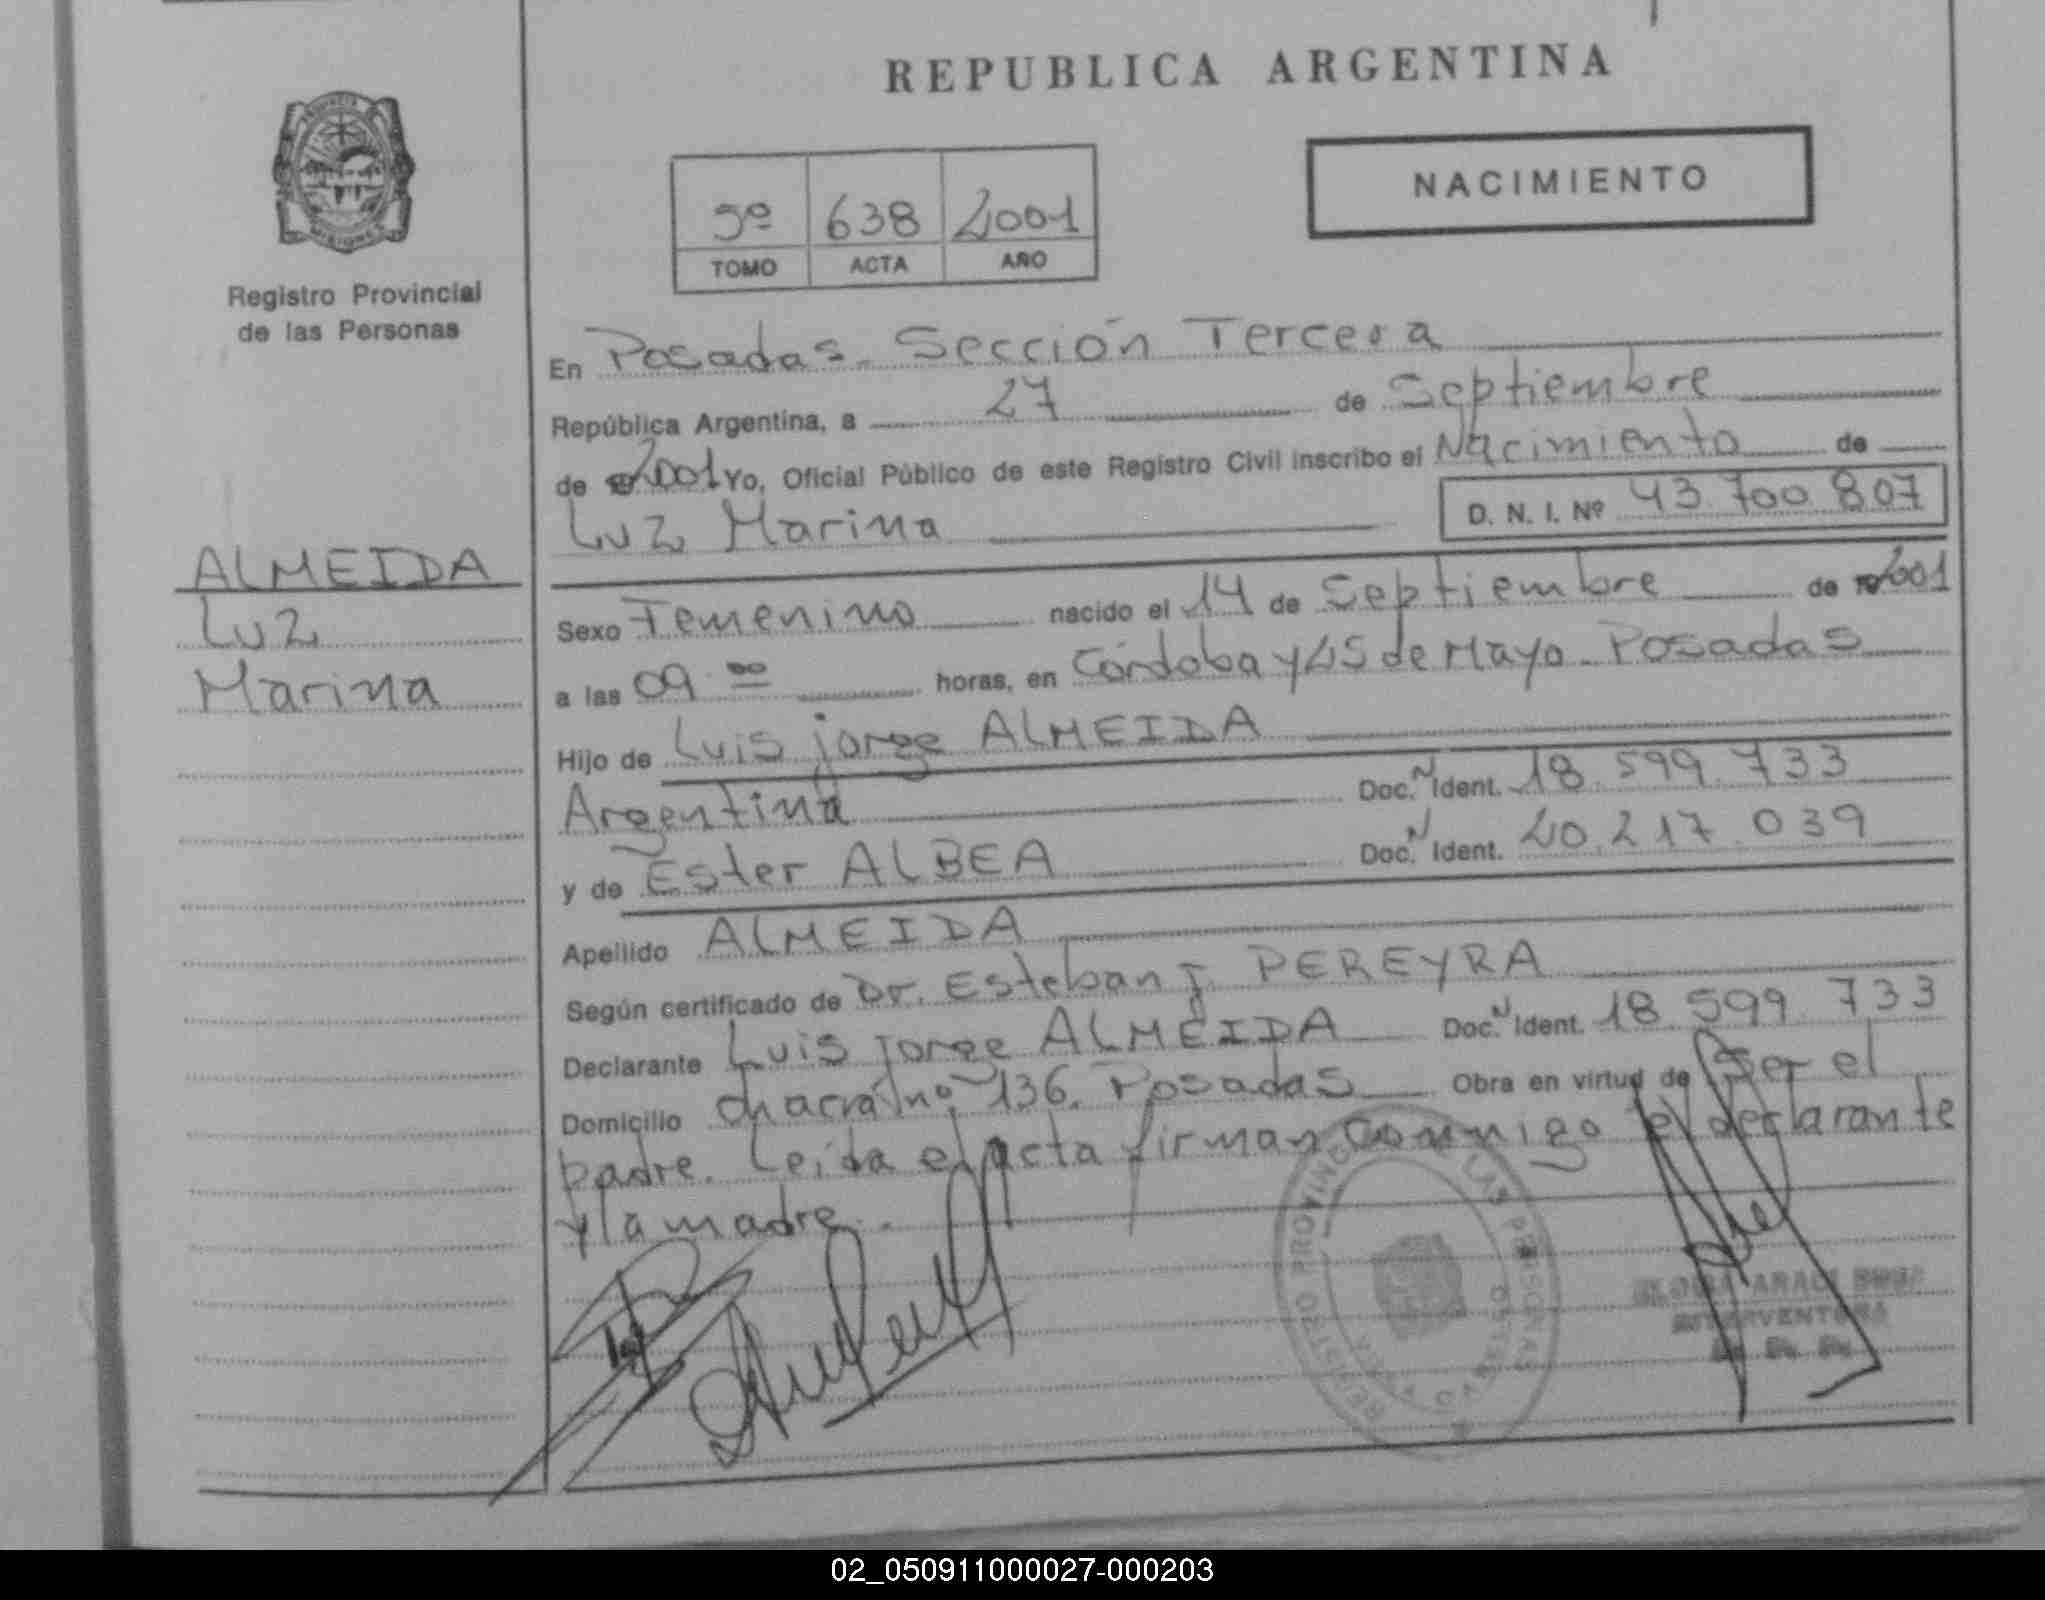 REPUBLICA ARGENTINA
NACIMIENTO
5º 638 2001
TOMO ACTA AÑO
MISIONES
Registro Provincial
de las Personas
En Posadas. Sección Tercera
República Argentina, a 27 de Septiembre
de 2001 Yo, Oficial Público de este Registro Civil inscribo el Nacimiento de
Luz Marina D. N. I. Nº 43.700.807
ALMEIDA
Luz
Marina
Sexo Femenino nacido el 14 de Septiembre de 2001
a las 09 00 horas, en Córdoba y 25 de Mayo. Posadas
Hijo de Luis Jorge ALMEIDA
Argentina Doc. N Ident. 18.599.733
y de Ester ALBEA Doc. N Ident. 20.217.039
Apellido ALMEIDA
Según certificado de Dr. Esteban J. PEREYRA
Declarante Luis Jorge ALMEIDA Doc. N Ident. 18.599.733
Domicilio chacra nº 136. Posadas Obra en virtud de ser el
padre. Leída el acta firman conmigo el declarante
y la madre.
REGISTRO PROVINCIAL DE LAS PERSONAS
02_050911000027-000203